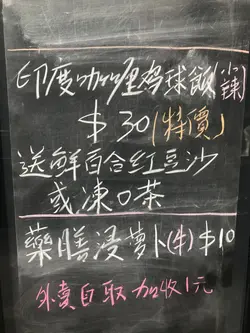 印度咖喱鸡球飯(小辣)
$30(特價)
送鮮百合紅豆沙
或凍口茶
藥膳浸萝卜(牛)$10
外卖自取加收1元